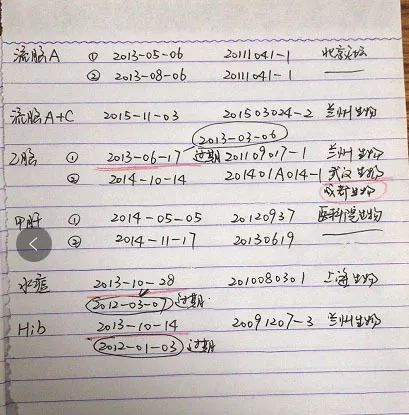 流脑A ① 2013-05-06 20111041-1 北京
② 2013-08-06 20111041-1
流脑A+C 2015-11-03 201503024-2 兰州生物
2013-03-06
乙脑 ① 2013-06-17 过期 201109017-1 兰州生物
② 2014-10-14 201401A014-1 武汉生物
成都生物
甲肝 ① 2014-05-05 20120937 医科院生物
② 2014-11-17 20130619
水痘 2013-10-28 2010080301 上海生物
2012-03-07 过期
Hib 2013-10-14 20091207-3 兰州生物
2012-01-03 过期